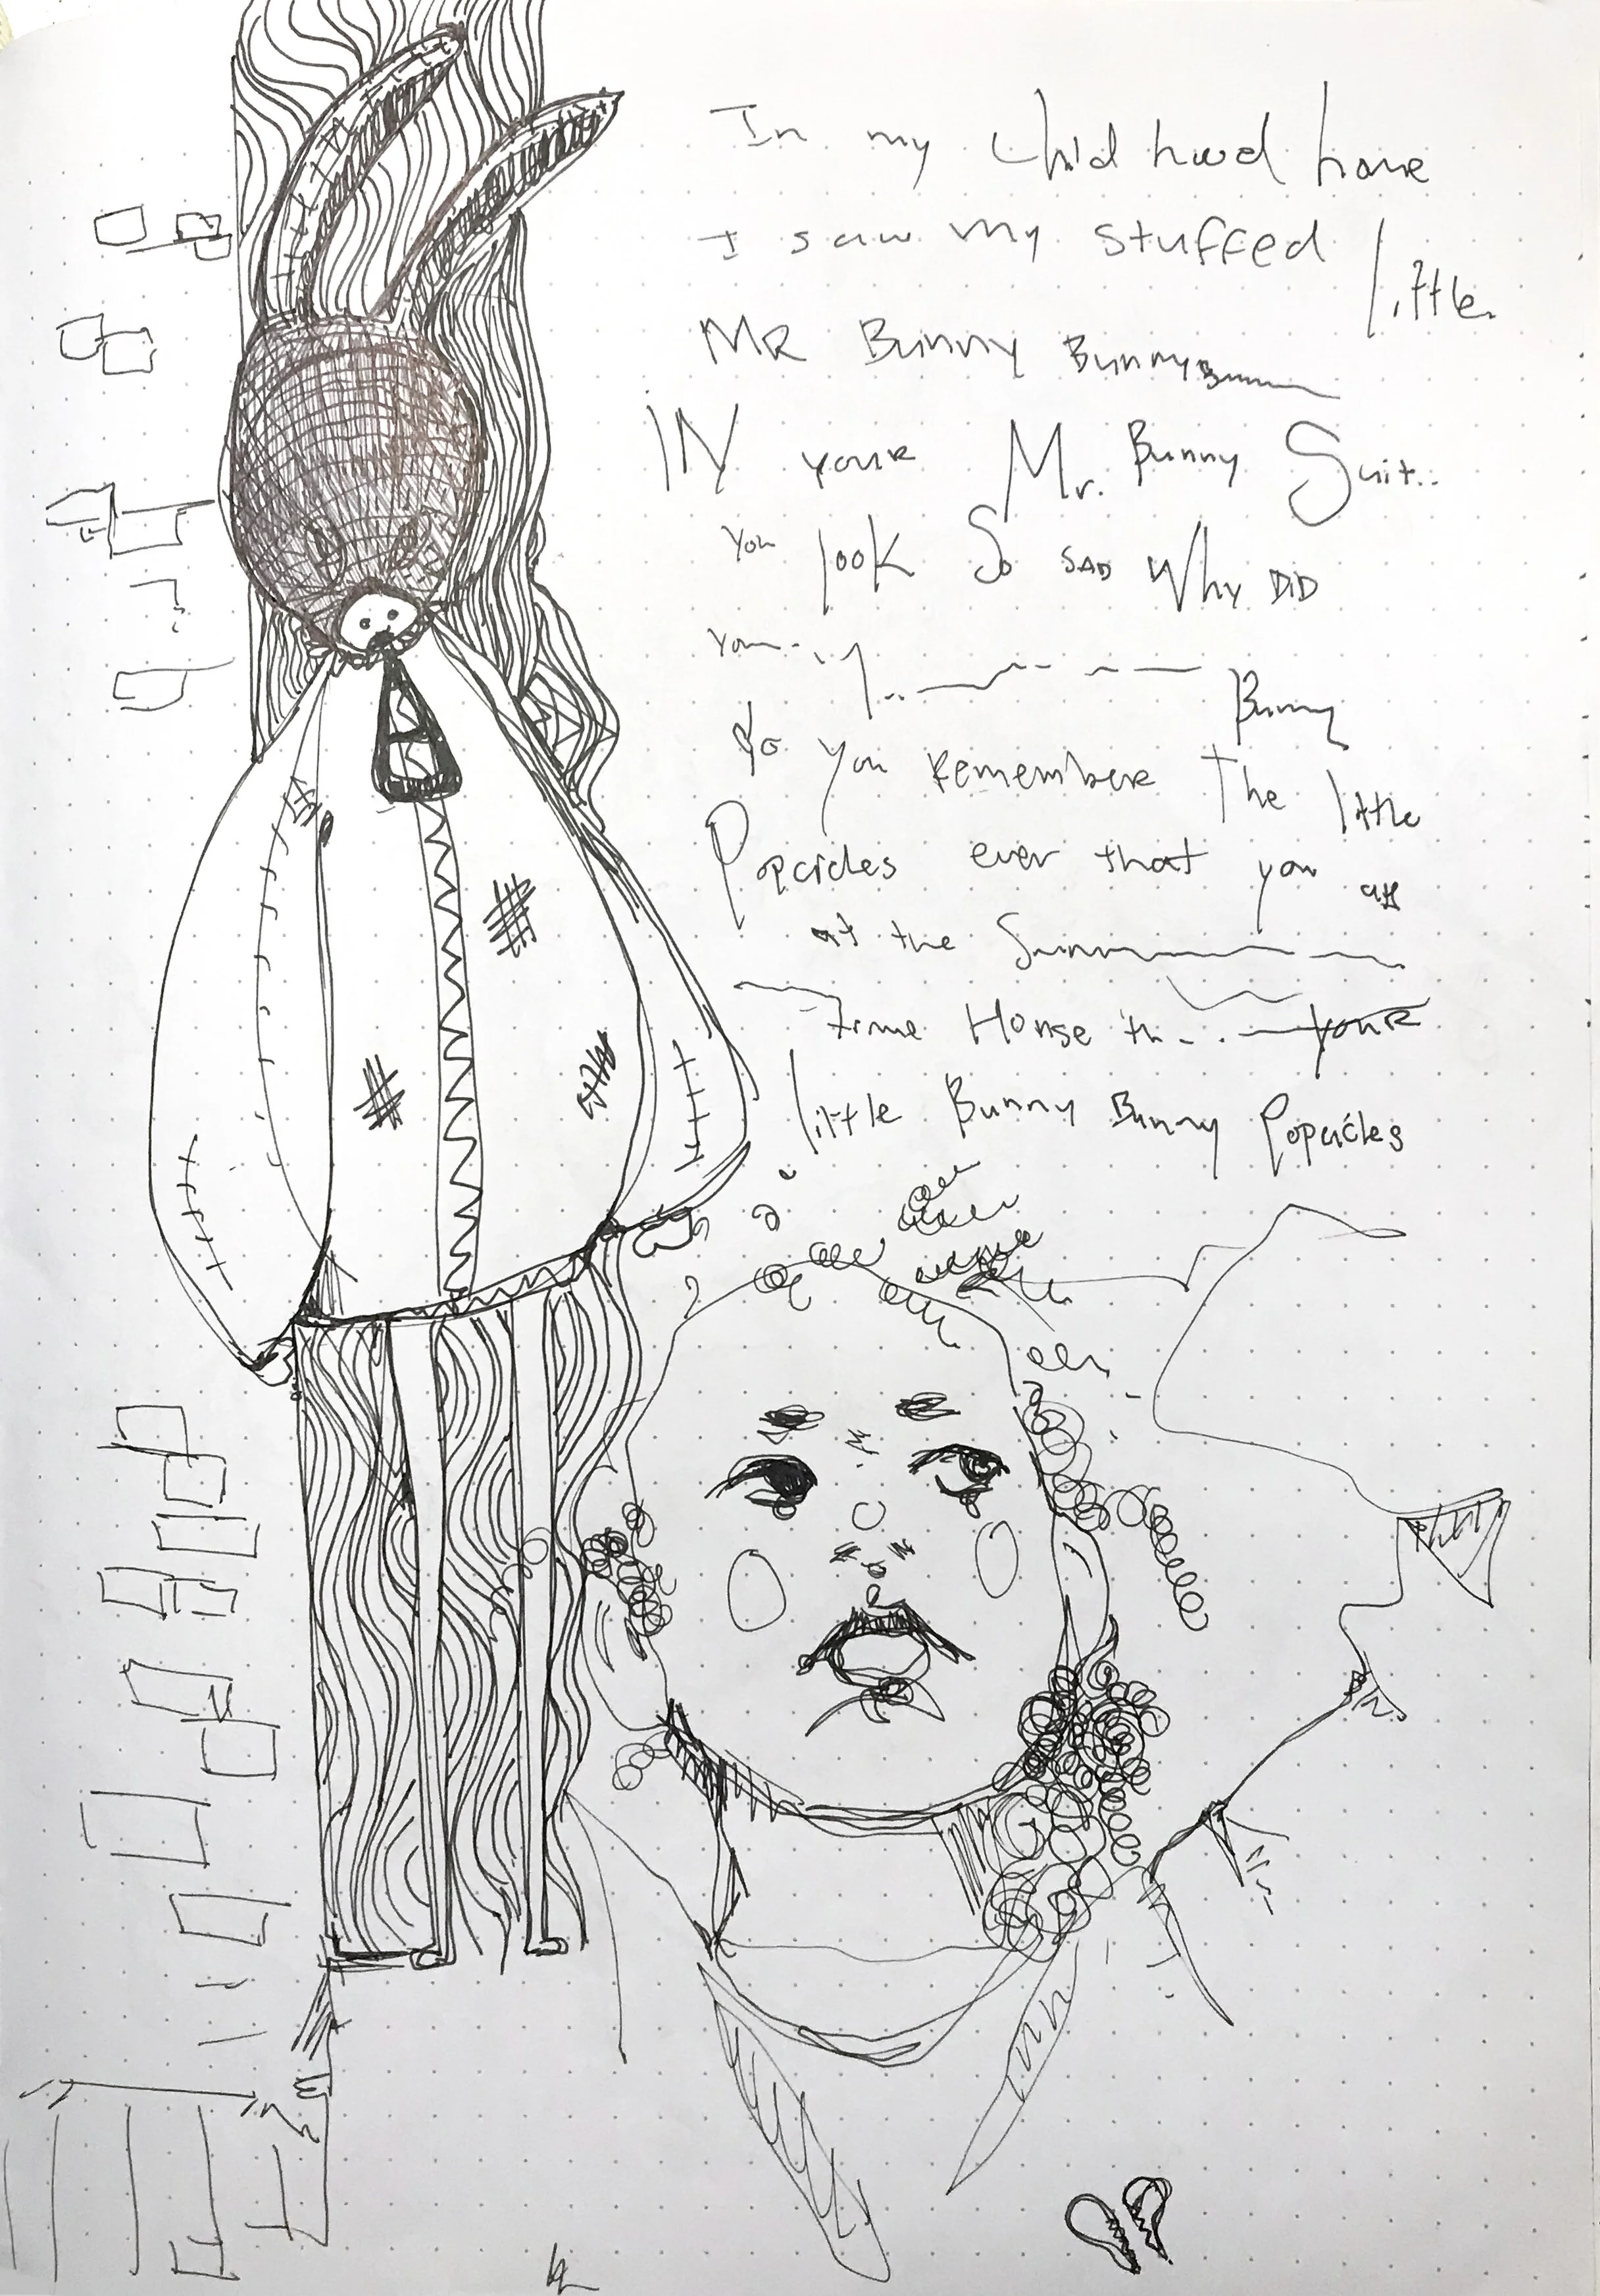 In my Childhood home
I saw my stuffed little
MR Bunny Bunny
IN your Mr. Bunny Suit..
You look So SAD Why DID
You
Bunny
do you remember The little
Popcicles ever that you
at the Summ
time House th your
little Bunny Bunny Popcicles